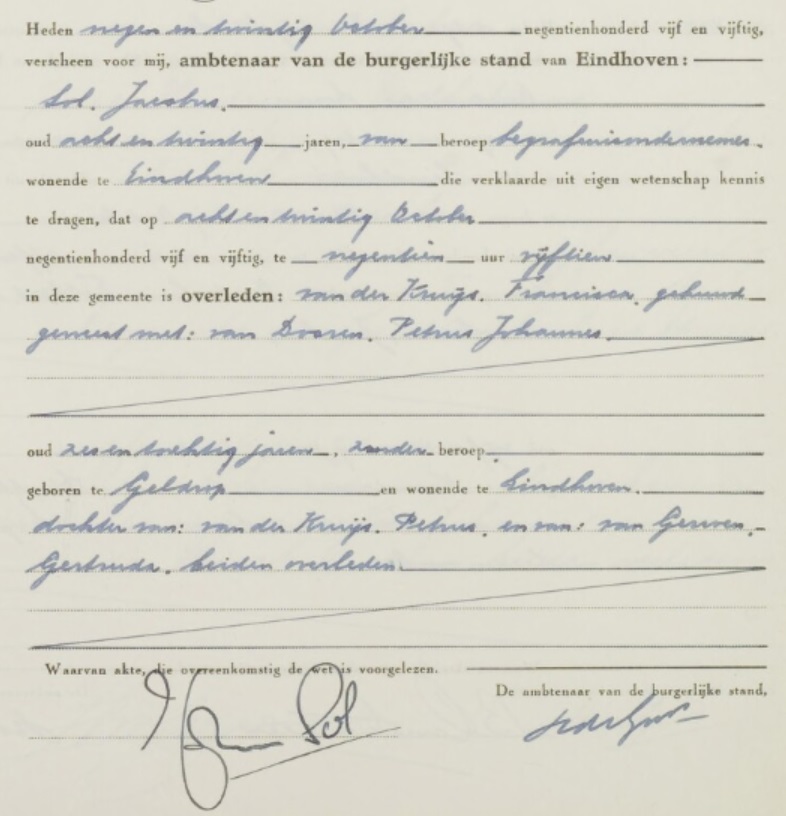 Heden negen en twintig October negentienhonderd vijf en vijftig,
verscheen voor mij, ambtenaar van de burgerlijke stand van Eindhoven:
Pol. Jacobus.
oud acht en twintig jaren, van beroep begrafenisondernemer.
wonende te Eindhoven die verklaarde uit eigen wetenschap kennis
te dragen, dat op acht en twintig October
negentienhonderd vijf en vijftig, te negentien uur vijftien
in deze gemeente is overleden: van der Kruijs. Francisca, gehuwd
geweest met: van Dooren. Petrus Johannes.
oud zes en tachtig jaren, zonder beroep.
geboren te Geldrop en wonende te Eindhoven.
dochter van: van der Kruijs. Petrus, en van: van Gerwen.
Gertruda. beiden overleden.
Waarvan akte, die overeenkomstig de wet is voorgelezen.
De ambtenaar van de burgerlijke stand,
Pol